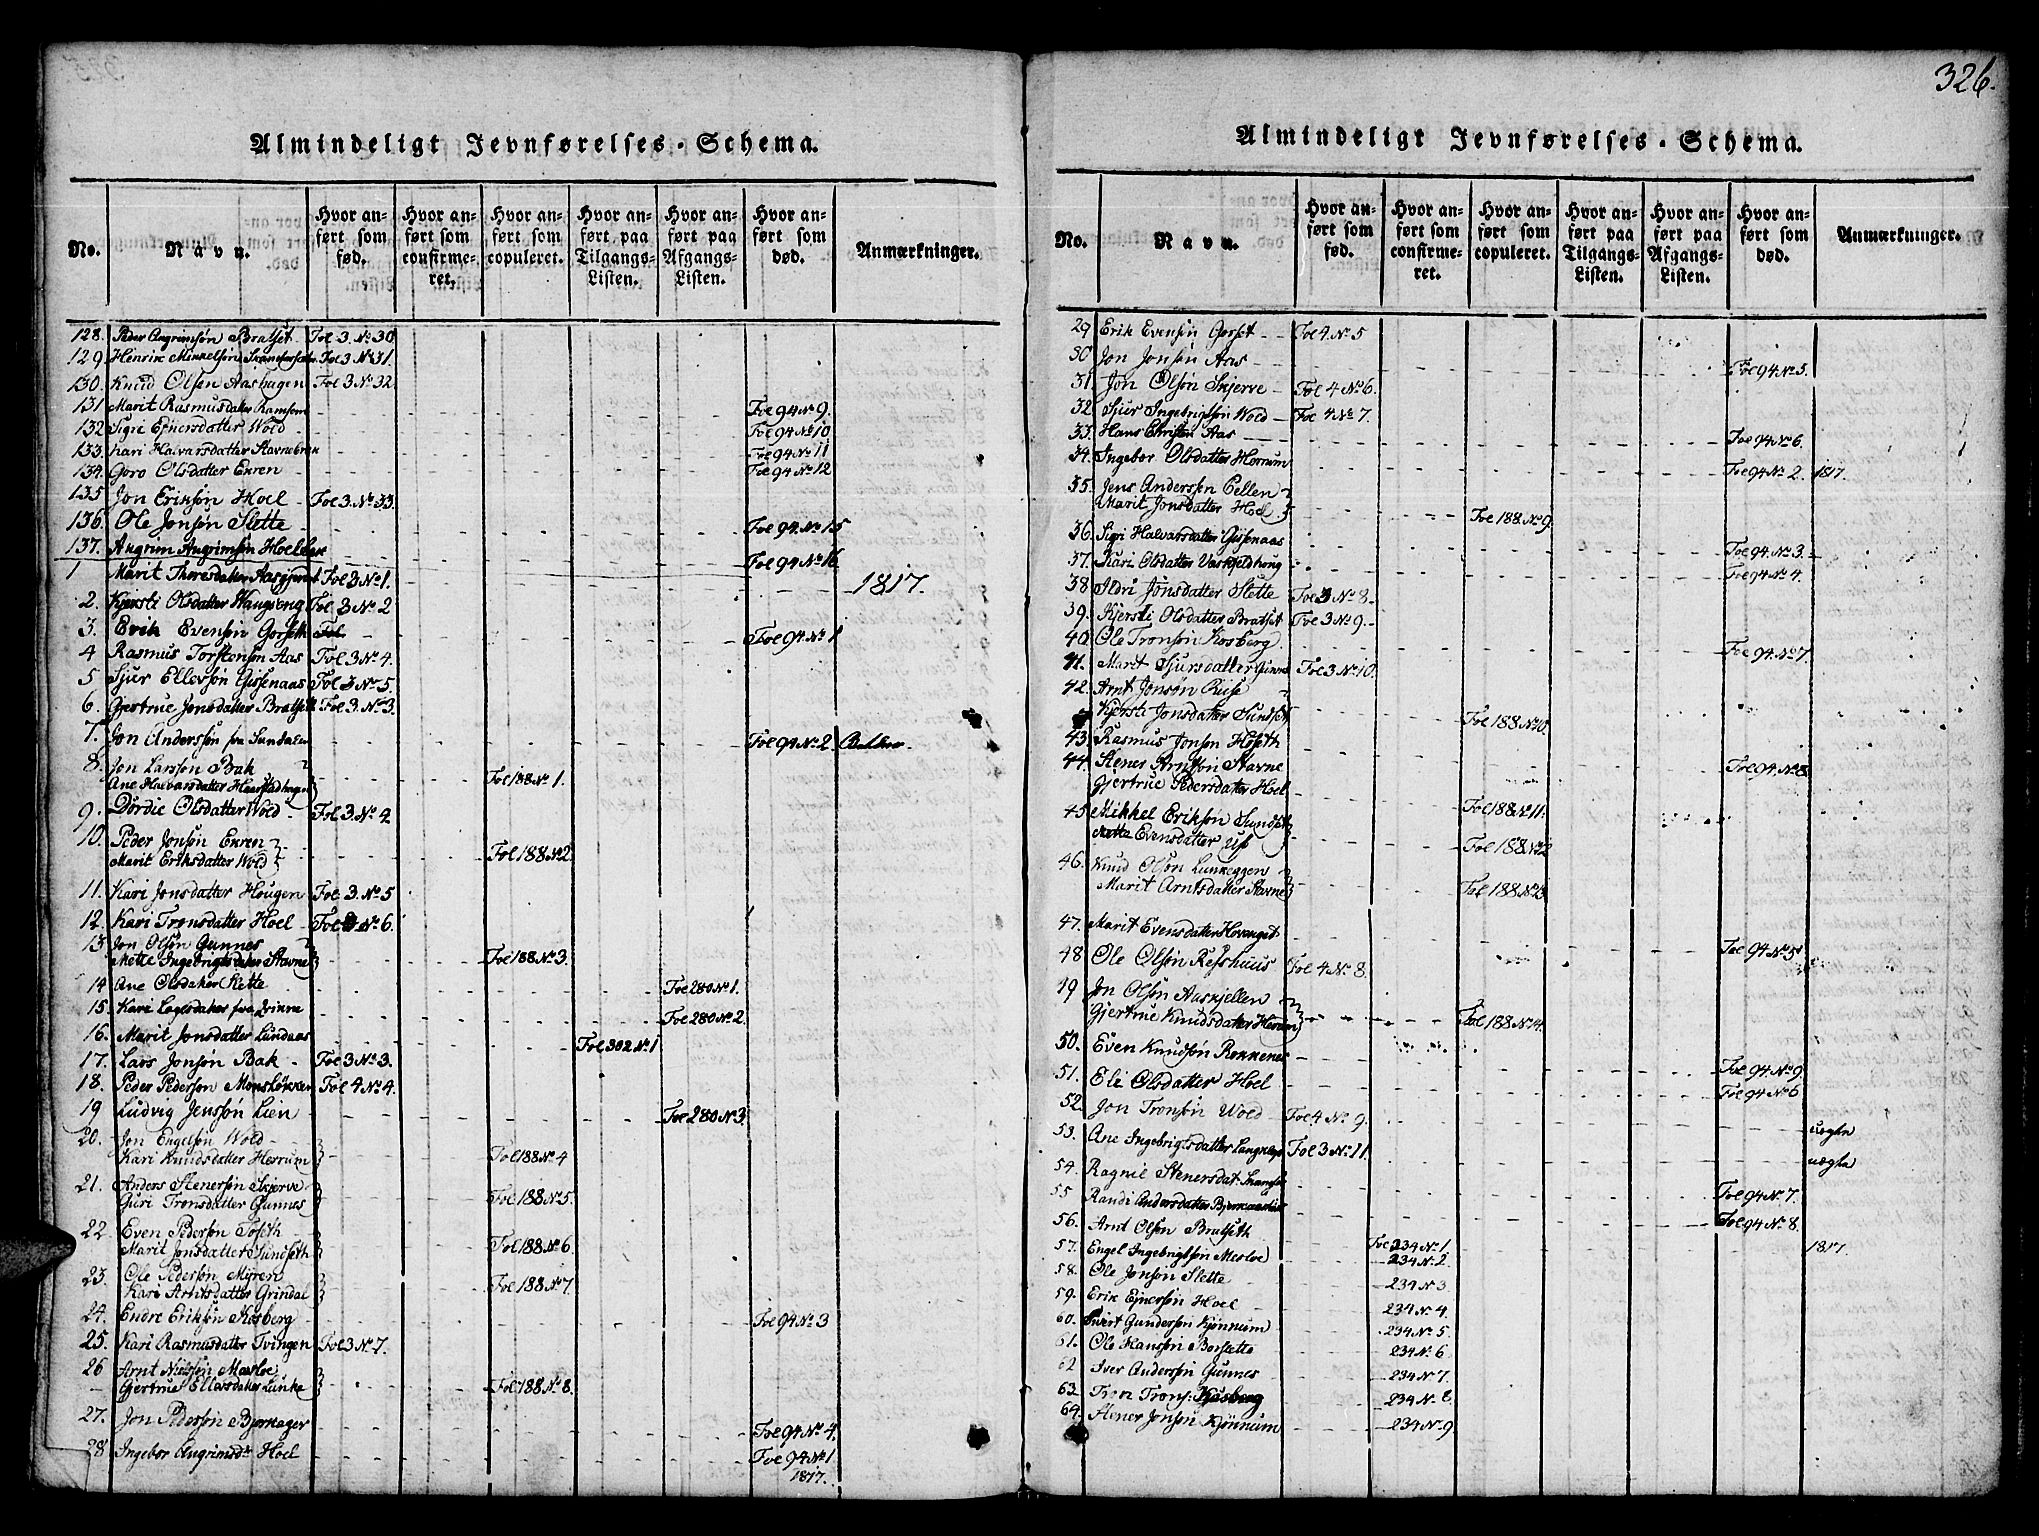 326.
Almindeligt Jevnførelses-Schema.
No. Navn. Hvor anført som fød. Hvor anført som confirmeret. Hvor anført som copuleret. Hvor anført paa Tilgangs-Listen. Hvor anført paa Afgangs-Listen. Hvor anført som død. Anmærkninger.
128. Peder Angrimsøn Bratset Fol 3. No 30
129. Henrik Mikkelsøn Fol 3 No 31.
130. Knud Olsen Aashagen Fol 3 No 32
131 Marit Rasmusdatter Ramsem Foe 94 No 9.
132 Sigri Ejnersdatter Wold Foe 94 No 10
133. Kari Halvarsdatter Stavnebren Foe 94 No 11
134. Goro Olsdatter Enren Foe 94 No 12
135 Jon Eriksøn Hoel Foe 3. No 33.
136. Ole Jonsøn Slette Foe 94. No 15
137. Angrim Angrimsøn Foe 94 No 16
1 Marit Thoresdatter Fol 3 No 1. 1817.
2. Kjersti Olsdatter Haugseng Fol 3 No 2
3. Erik Evensøn Gorseth Fol Foe 94 No 1
4 Rasmus Torstensøn Aas Fol 3 No 4.
5 Sjur Ellevsøn Gissenaas Fol 3 No 5.
6. Gjertrue Jonsdatter Bratset Fol 3. No 3.
7. Jon Andersøn fra Sundalen Foe 94 No 2
8. Jon Larssøn Bak
Ane Halvarsdatter Foe 188 No 1.
9. Dordie Olsdatter Wold Fol 3. No 4
10. Peder Jonsøn Enren
Marit Eriksdatter Wold Fol 188 No 2
11. Kari Jonsdatter Hougen Foe 3. No 5
12. Kari Tronsdatter Hoel Foe 3 No 6.
13 Jon Olsøn Gunnes
Mette Ingebrigtsdatter Stavne Foe 188 No 3.
14 Ane Olsdatter Slette Foe 280 No 1.
15. Kari Lagesdatter fra Qvinne Foe 280 No 2.
16. Marit Jonsdatter Lundaas Foe 302 No 1
17. Lars Jonsøn Bak Foe 3 No 3.
18. Peder Pedersøn Monsløkken Fol 4 No 4.
19 Ludvig Jenssøn Lien Foe 280 No 3.
20. Jon Engelsøn Wold
Kari Knudsdatter Herrum Fol 188 No 4
21. Anders Stenersøn Skjerve
Guri Tronsdatter Gunnes Foe 188 No 5.
22 Even Pedersøn Toseth
Marit Jonsdatter Sundseth Fol 188 No 6.
23. Ole Pedersøn Myren
Kari Arntsdatter Grindal Foe 188 No 7.
24. Endre Eriksøn Kosberg Foe 94 No 3
25. Kari Rasmusdatter Tvingen Fol 3 No 7.
26 Arnt Nielssøn Mesloe
Gjertrue Ellevsdatter Lunke Fol 188 No 8.
27. Jon Pedersøn Bjerkager Foe 94 No 4.
28 Ingebor Angrimsd. Hoel Foe 94 No 1
1817.
Almindeligt Jevnførelses-Schema.
No. Navn. Hvor anført som fød. Hvor anført som confirmeret. Hvor anført som copuleret. Hvor anført paa Tilgangs-Listen. Hvor anført paa Afgangs-Listen. Hvor anført som død. Anmærkninger.
29 Erik Evensøn Gorset Foe 4 No 5
30 Jon Jonsøn Aas Foe 94 No 5.
31. Jon Olsøn Skjerve Fol 4 No 6.
32 Sjur Ingebrigtsøn Wold Foe 4 No 7.
33. Hans Aas Foe 94 No 6.
34. Ingebor Olsdatter Herrum Foe 94 No 2. 1817.
35. Jens Anderssøn Cellen
Marit Jonsdatter Hoel Foe 188 No 9.
36. Sigri Halvarsdatter Gissenaas Foe 94 No 3.
37. Kari Olsdatter Vaskjeldhoug Foe 94 No 4.
38 Ildri Jonsdatter Slette Foe 3 No 8.
39. Kjersti Olsdatter Bratset Foe 3 No 9.
40. Ole Tronsøn Kosberg Foe 94 No 7.
41. Marit Sjursdatter Gunnes Foe 3 No 10.
42. Arnt Jonsøn Riise
Kjersti Jonsdatter Sundset Foe 188 No 10.
43. Rasmus Jonsøn Hoseth Foe 94 No 8.
44. Stener Arntsøn Stavne
Gjertrue Pedersdatter Hoel Foe 188 No 11.
45 Mikkel Eriksøn Sundset
Mette Evensdatter Uss Foe 188 No 12
46. Knud Olsøn Lunkeggen
Marit Arntsdatter Stavne Foe 188 No 13
47. Marit Evensdatter Hovenget Foe 94 No 5
48 Ole Olsøn Resshuus Foe 4 No 8.
49 Jon Olsøn Aaskjellen
Gjertrue Knudsdatter Herrum Fol 188 No 14.
50. Even Knudsøn Rønnenes Foe 94 No 9.
51. Eli Olsdatter Hoel Foe 94 No 6
52 Jon Tronsøn Wold Foe 4 No 9.
53. Ane Ingebrigtsdatter Foe 3 No 11. uegte
54. Ragnil Stenersdat. uegte Foe 94 No 7.
55 Randi Andersdatter Foe 94 No 8.
56. Arnt Olsøn Bratseth Foe 234 No 1 1817.
57. Engel Ingebrigtsøn Mesloe 234 No 2.
58. Ole Jonsøn Slette 234 No 3
59. Erik Ejnersøn Hoel 234 No 4.
60. Sivert Gundersøn Kjønnum 234 No 5.
61. Ole Hanssøn Borsette 234 No 6
62 Iver Andersøn Gunnes 234 No 7.
63. Tron Trons: Kosberg 234 No 8
64. Stener Jonsøn Kjønnum 234 No 9.